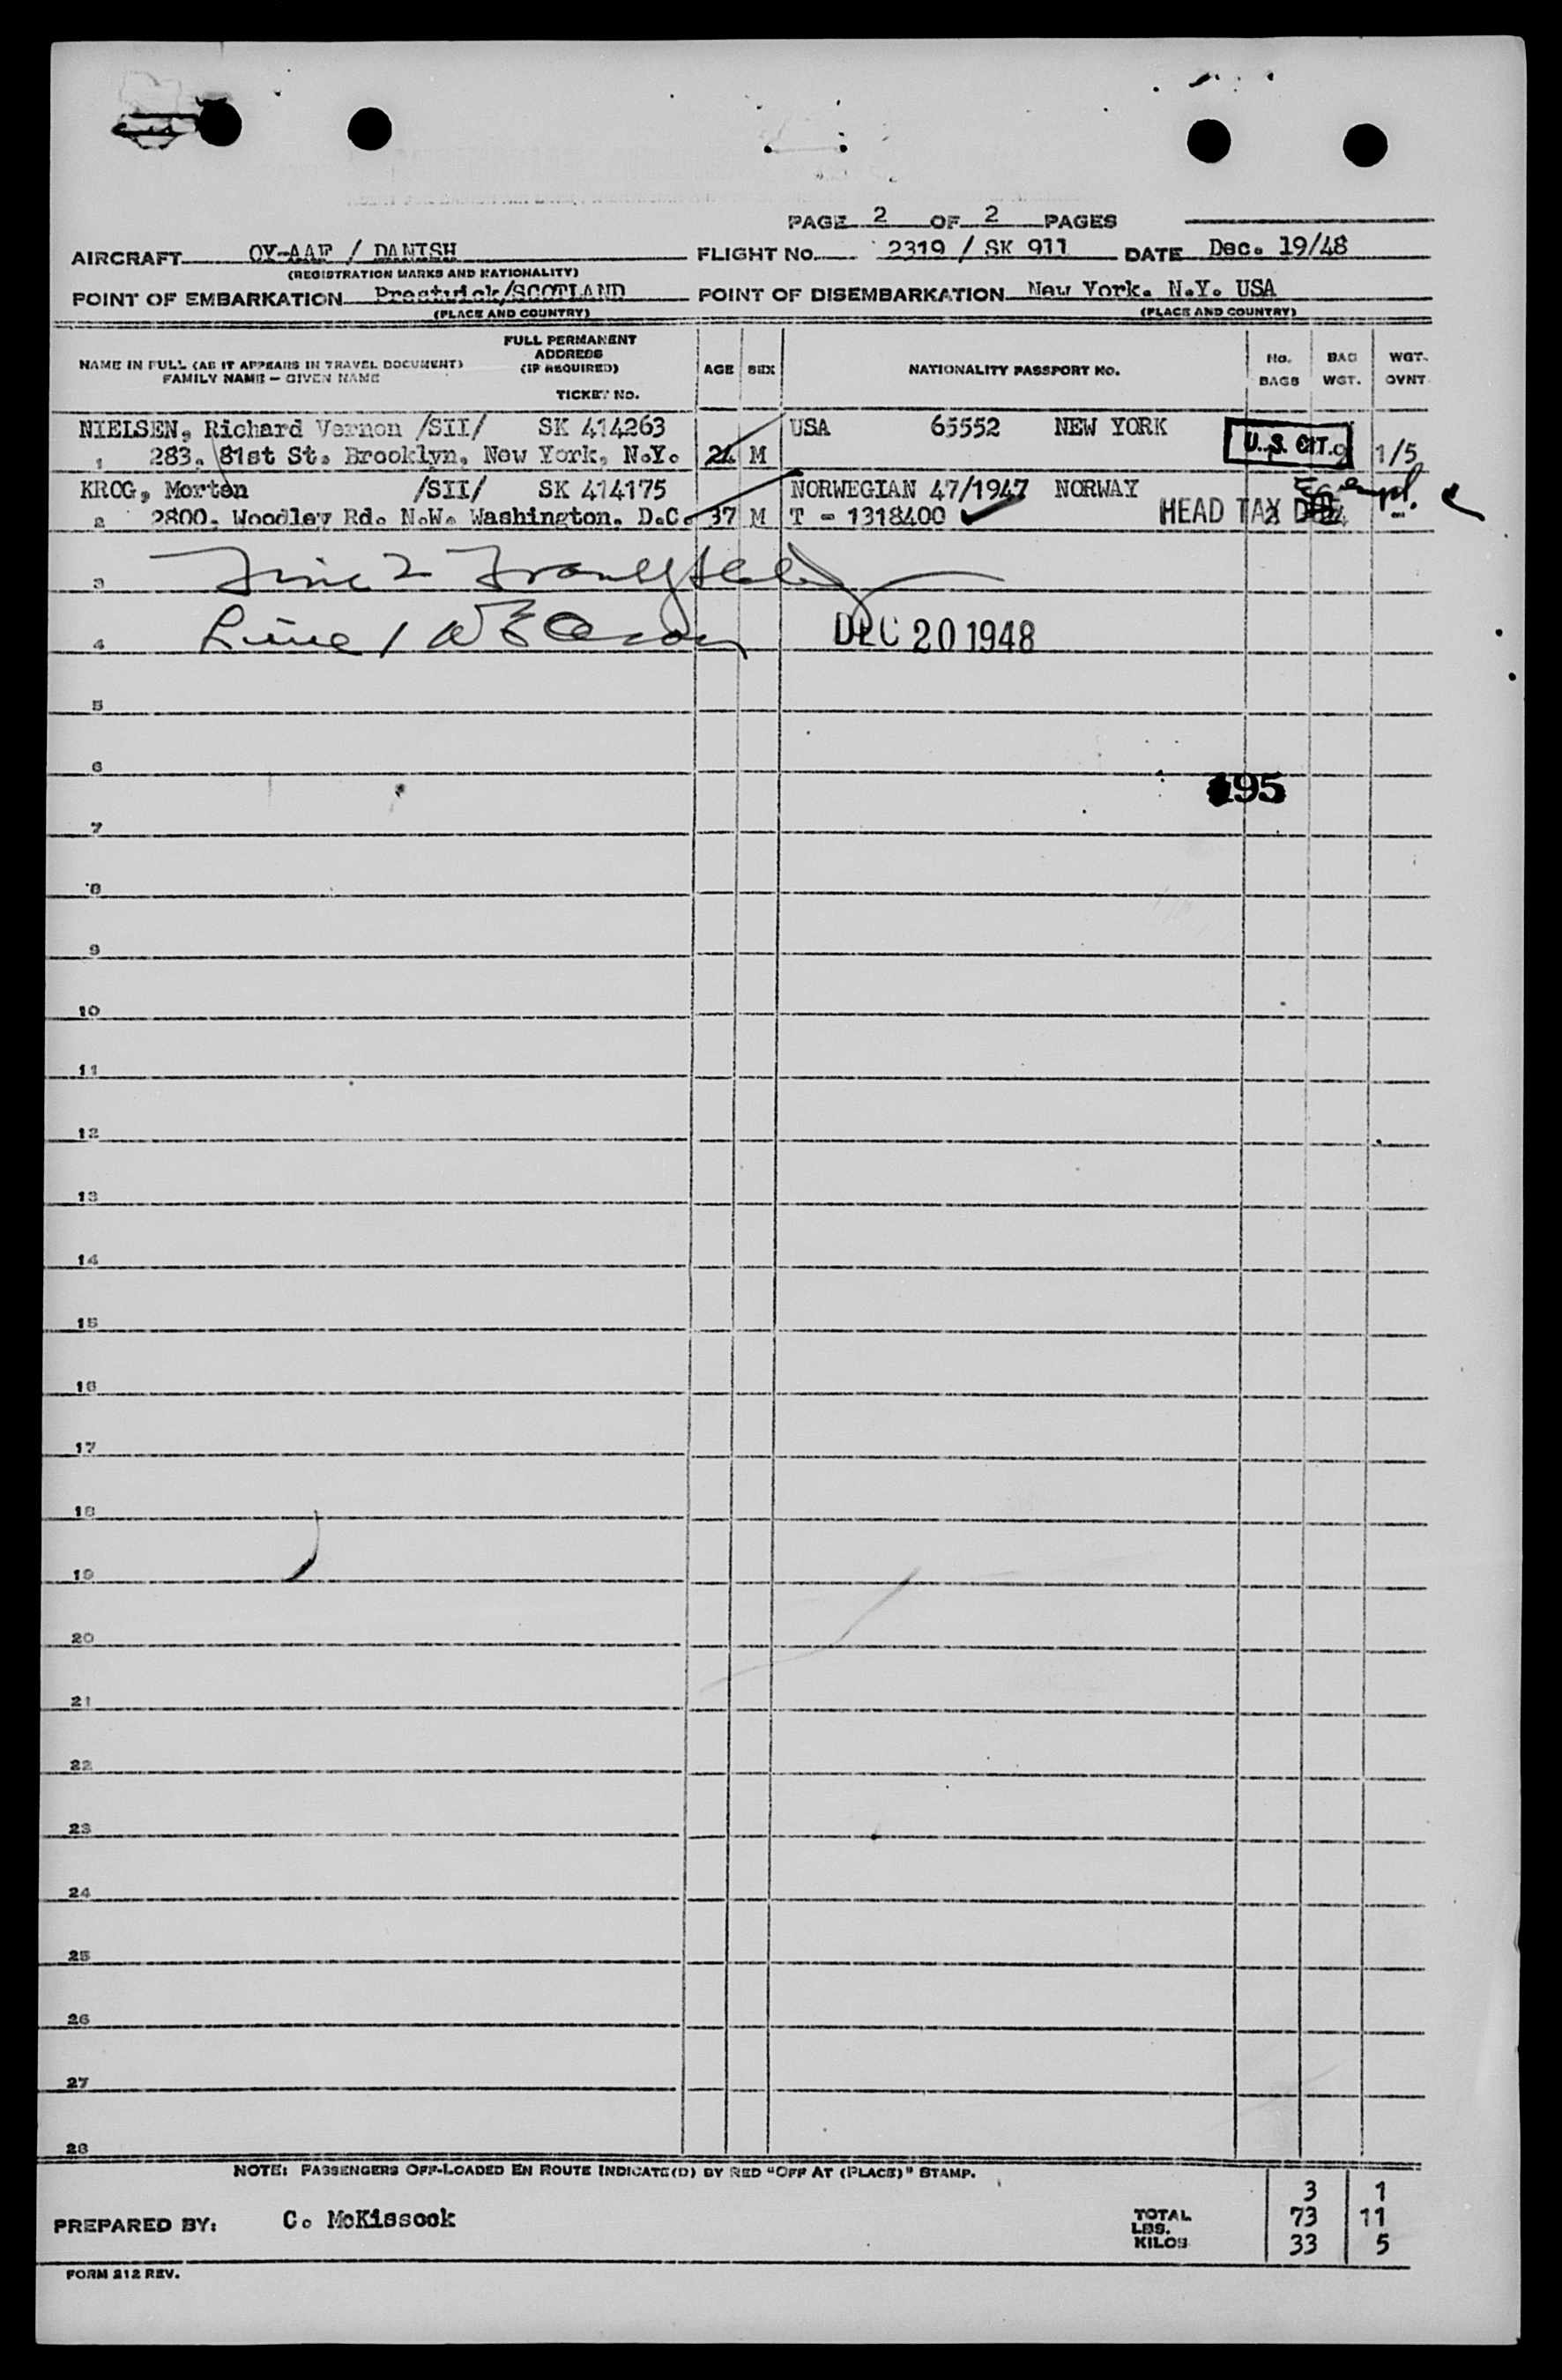 PAGE 2 OF 2 PAGES
AIRCRAFT OY-AAF / DANISH FLIGHT NO. 2319 / SK 911 DATE Dec. 19/48
(REGISTRATION MARKS AND NATIONALITY)
POINT OF EMBARKATION Prestwick/SCOTLAND POINT OF DISEMBARKATION New York. N.Y. USA
(PLACE AND COUNTRY) (PLACE AND COUNTRY)
NAME IN FULL (AS IT APPEARS IN TRAVEL DOCUMENT)
FAMILY NAME – GIVEN NAME
FULL PERMANENT
ADDRESS
(IF REQUIRED)
TICKET NO.
AGE SEX NATIONALITY PASSPORT NO.
NO. BAGS
BAG WGT.
WGT. OVNT
NIELSEN, Richard Vernon /SII/ SK 414263 USA 65552 NEW YORK
1 283. 81st St. Brooklyn, New York, N.Y. M U.S. CIT. 1/5
KROG, Morten /SII/ SK 414175 NORWEGIAN 47/1947 NORWAY
2 2800. Woodley Rd. N.W. Washington. D.C. 37 M T - 1318400 HEAD TAX Exempt.
3 Line 2
4 Line 1 DEC 20 1948
5
6
195
7
8
9
10
11
12
13
14
15
16
17
18
19
20
21
22
23
24
25
26
27
28
NOTE: PASSENGERS OFF-LOADED EN ROUTE INDICATE(D) BY RED "OFF AT (PLACE)" STAMP.
3 1
PREPARED BY: C. McKissock TOTAL LBS. 73 11
KILOS 33 5
FORM 212 REV.